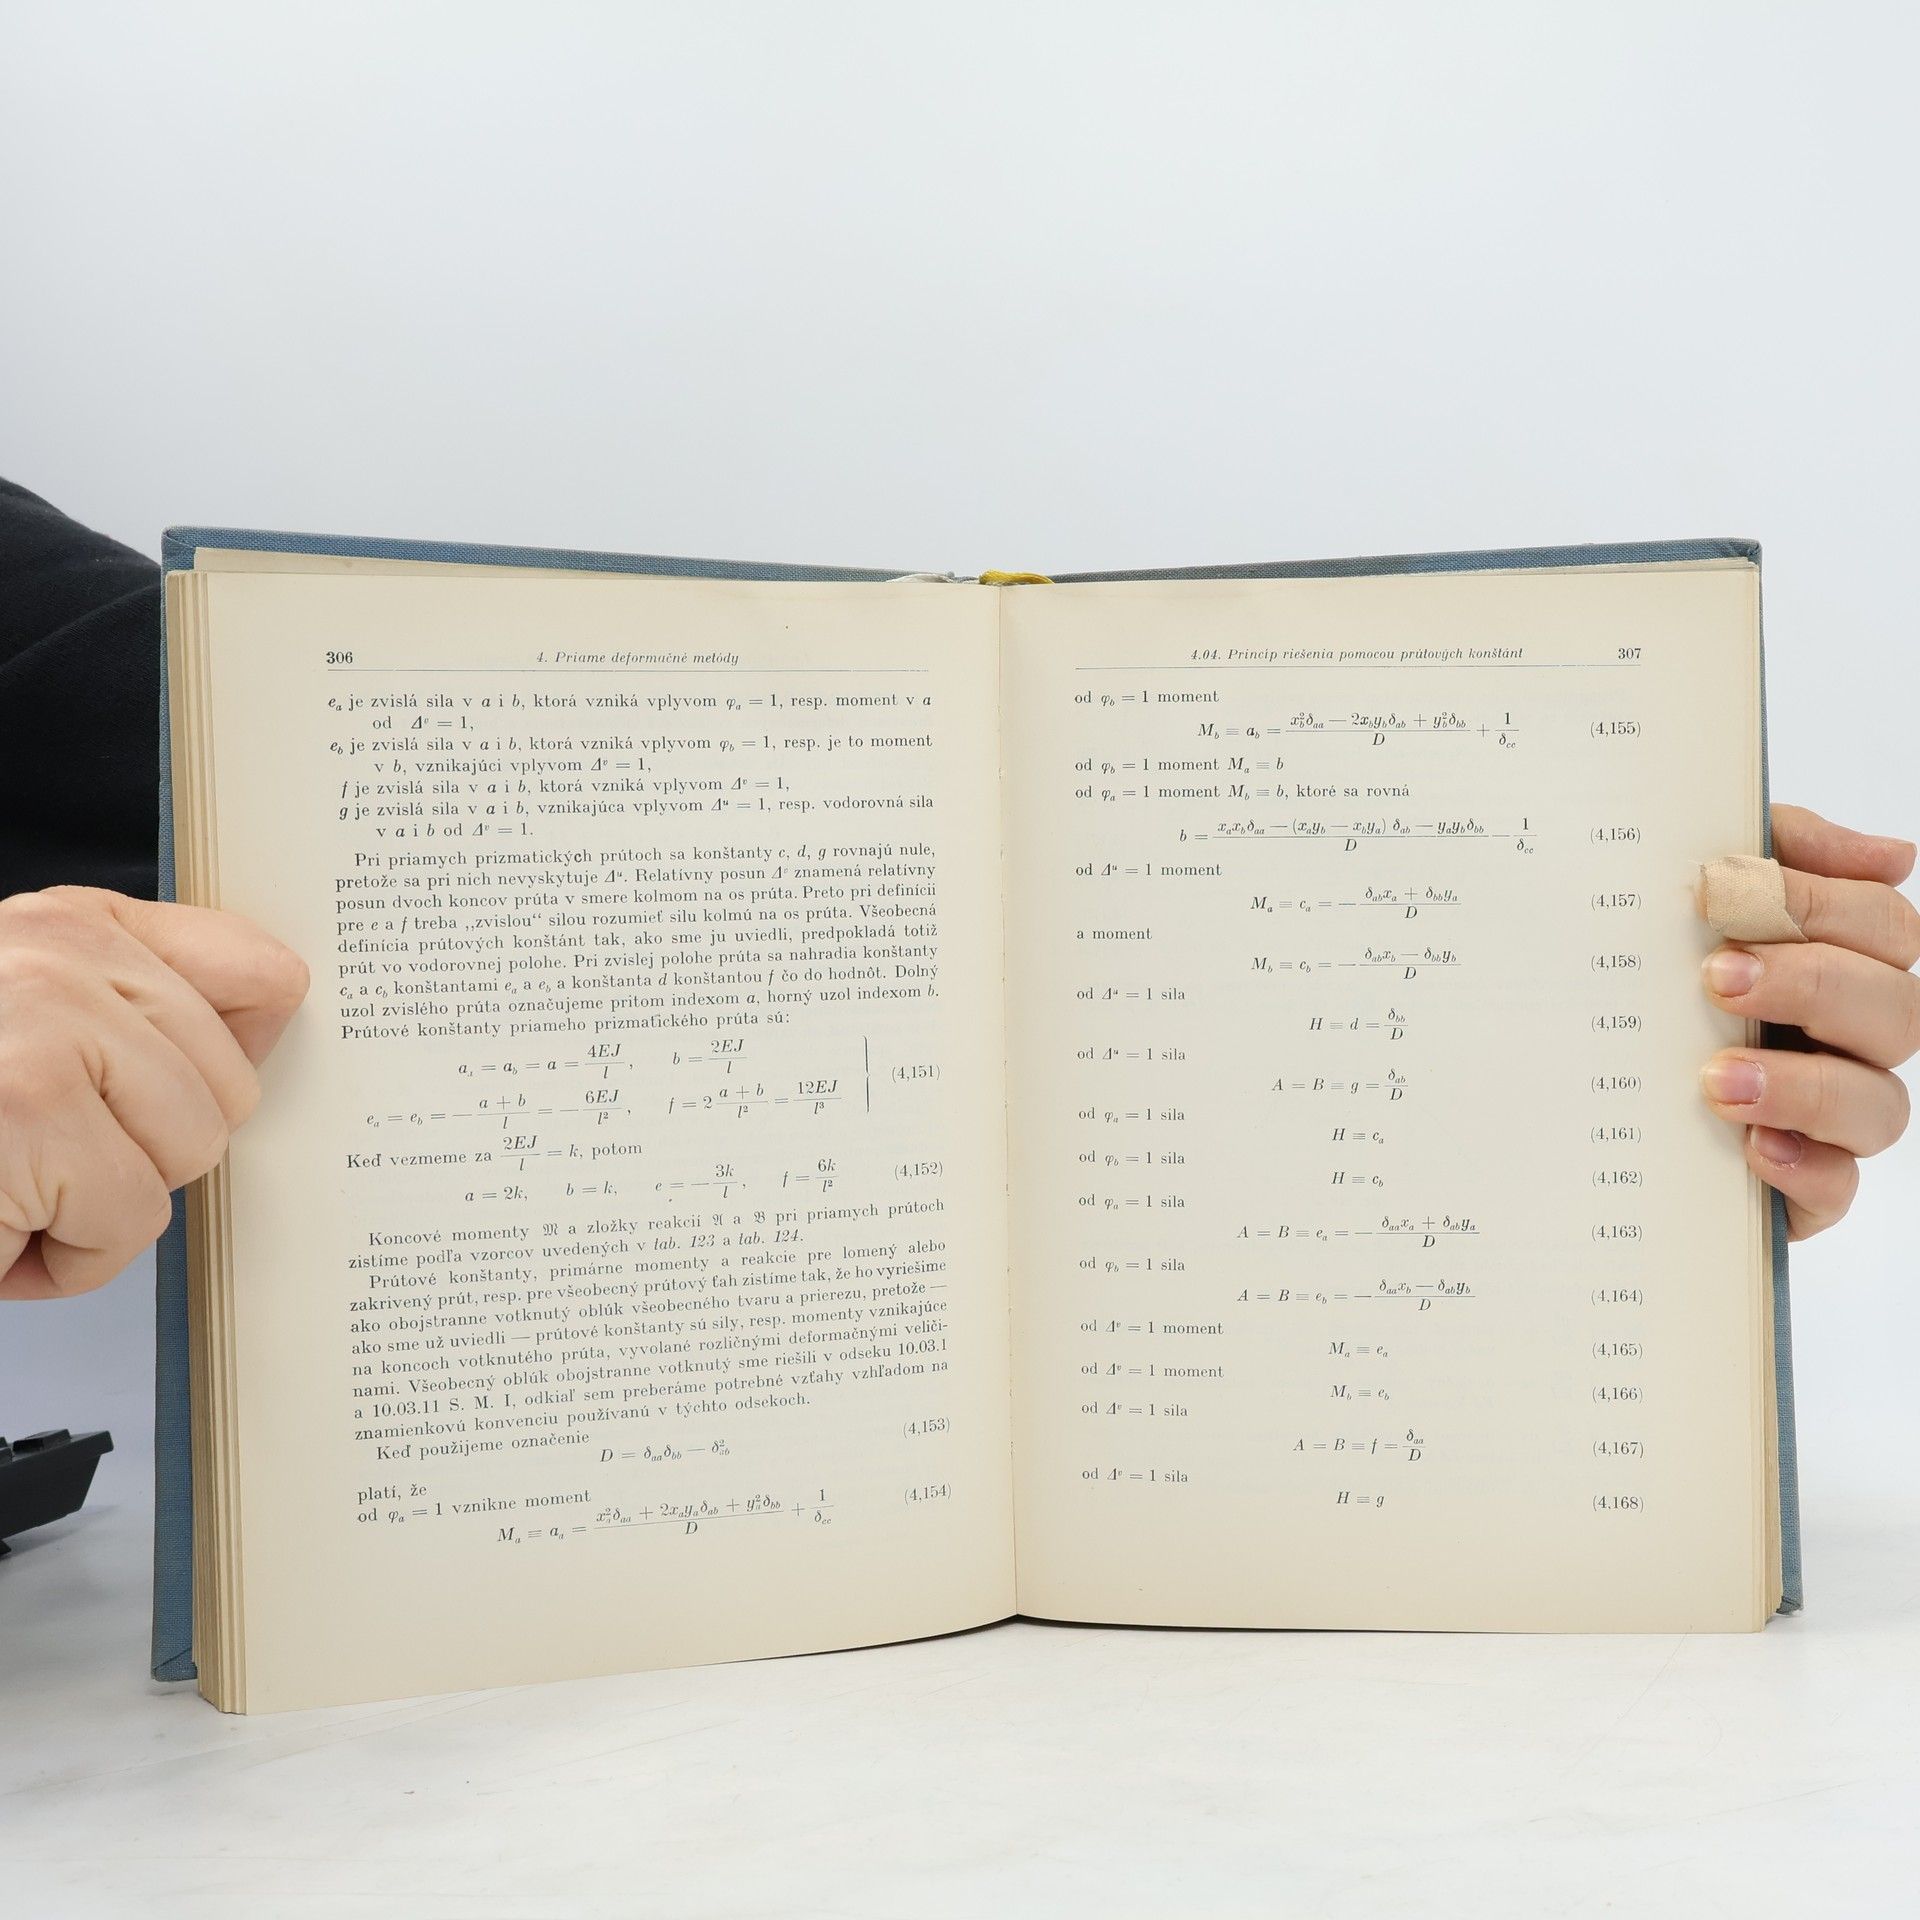 306 4. Priame deformačné metódy
e_a je zvislá sila v a i b, ktorá vzniká vplyvom φ_a = 1, resp. moment v a
od Δ^v = 1,
e_b je zvislá sila v a i b, ktorá vzniká vplyvom φ_b = 1, resp. je to moment
v b, vznikajúci vplyvom Δ^v = 1,
f je zvislá sila v a i b, ktorá vzniká vplyvom Δ^v = 1,
g je zvislá sila v a i b, vznikajúca vplyvom Δ^u = 1, resp. vodorovná sila
v a i b od Δ^v = 1.
Pri priamych prizmatických prútoch sa konštanty c, d, g rovnajú nule,
pretože sa pri nich nevyskytuje Δ^u. Relatívny posun Δ^v znamená relatívny
posun dvoch koncov prúta v smere kolmom na os prúta. Preto pri definícii
pre e a f treba „zvislou“ silou rozumieť silu kolmú na os prúta. Všeobecná
definícia prútových konštánt tak, ako sme ju uviedli, predpokladá totiž
prút vo vodorovnej polohe. Pri zvislej polohe prúta sa nahradia konštanty
c_a a c_b konštantami e_a a e_b a konštanta d konštantou f čo do hodnôt. Dolný
uzol zvislého prúta označujeme pritom indexom a, horný uzol indexom b.
Prútové konštanty priameho prizmatického prúta sú:
a_a = a_b = a = 4EJ/l, b = 2EJ/l
e_a = e_b = −(a + b)/l = −6EJ/l², f = 2(a + b)/l² = 12EJ/l³ (4,151)
Keď vezmeme za 2EJ/l = k, potom
a = 2k, b = k, e = −3k/l, f = 6k/l² (4,152)
Koncové momenty 𝔐 a zložky reakcií 𝔄 a 𝔅 pri priamych prútoch
zistíme podľa vzorcov uvedených v tab. 123 a tab. 124.
Prútové konštanty, primárne momenty a reakcie pre lomený alebo
zakrivený prút, resp. pre všeobecný prútový ťah zistíme tak, že ho vyriešime
ako obojstranne votknutý oblúk všeobecného tvaru a prierezu, pretože —
ako sme už uviedli — prútové konštanty sú sily, resp. momenty vznikajúce
na koncoch votknutého prúta, vyvolané rozličnými deformačnými veliči-
nami. Všeobecný oblúk obojstranne votknutý sme riešili v odseku 10.03.1
a 10.03.11 S. M. I, odkiaľ sem preberáme potrebné vzťahy vzhľadom na
znamienkovú konvenciu používanú v týchto odsekoch.
Keď použijeme označenie
D = δ_aa δ_bb − δ²_ab (4,153)
platí, že
od φ_a = 1 vznikne moment
M_a ≡ a_a = (x²_a δ_aa + 2x_a y_a δ_ab + y²_a δ_bb)/D + 1/δ_cc (4,154)
4.04. Princíp riešenia pomocou prútových konštánt 307
od φ_b = 1 moment
M_b ≡ a_b = (x²_b δ_aa − 2x_b y_b δ_ab + y²_b δ_bb)/D + 1/δ_cc (4,155)
od φ_b = 1 moment M_a ≡ b
od φ_a = 1 moment M_b ≡ b, ktoré sa rovná
b = (x_a x_b δ_aa − (x_a y_b − x_b y_a) δ_ab − y_a y_b δ_bb)/D − 1/δ_cc (4,156)
od Δ^u = 1 moment
M_a ≡ c_a = −(δ_ab x_a + δ_bb y_a)/D (4,157)
a moment
M_b ≡ c_b = −(δ_ab x_b − δ_bb y_b)/D (4,158)
od Δ^u = 1 sila
H ≡ d = δ_bb/D (4,159)
od Δ^u = 1 sila
A = B ≡ g = δ_ab/D (4,160)
od φ_a = 1 sila
H ≡ c_a (4,161)
od φ_b = 1 sila
H ≡ c_b (4,162)
od φ_a = 1 sila
A = B ≡ e_a = −(δ_aa x_a + δ_ab y_a)/D (4,163)
od φ_b = 1 sila
A = B ≡ e_b = −(δ_aa x_b − δ_ab y_b)/D (4,164)
od Δ^v = 1 moment
M_a ≡ e_a (4,165)
od Δ^v = 1 moment
M_b ≡ e_b (4,166)
od Δ^v = 1 sila
A = B ≡ f = δ_aa/D (4,167)
od Δ^v = 1 sila
H ≡ g (4,168)